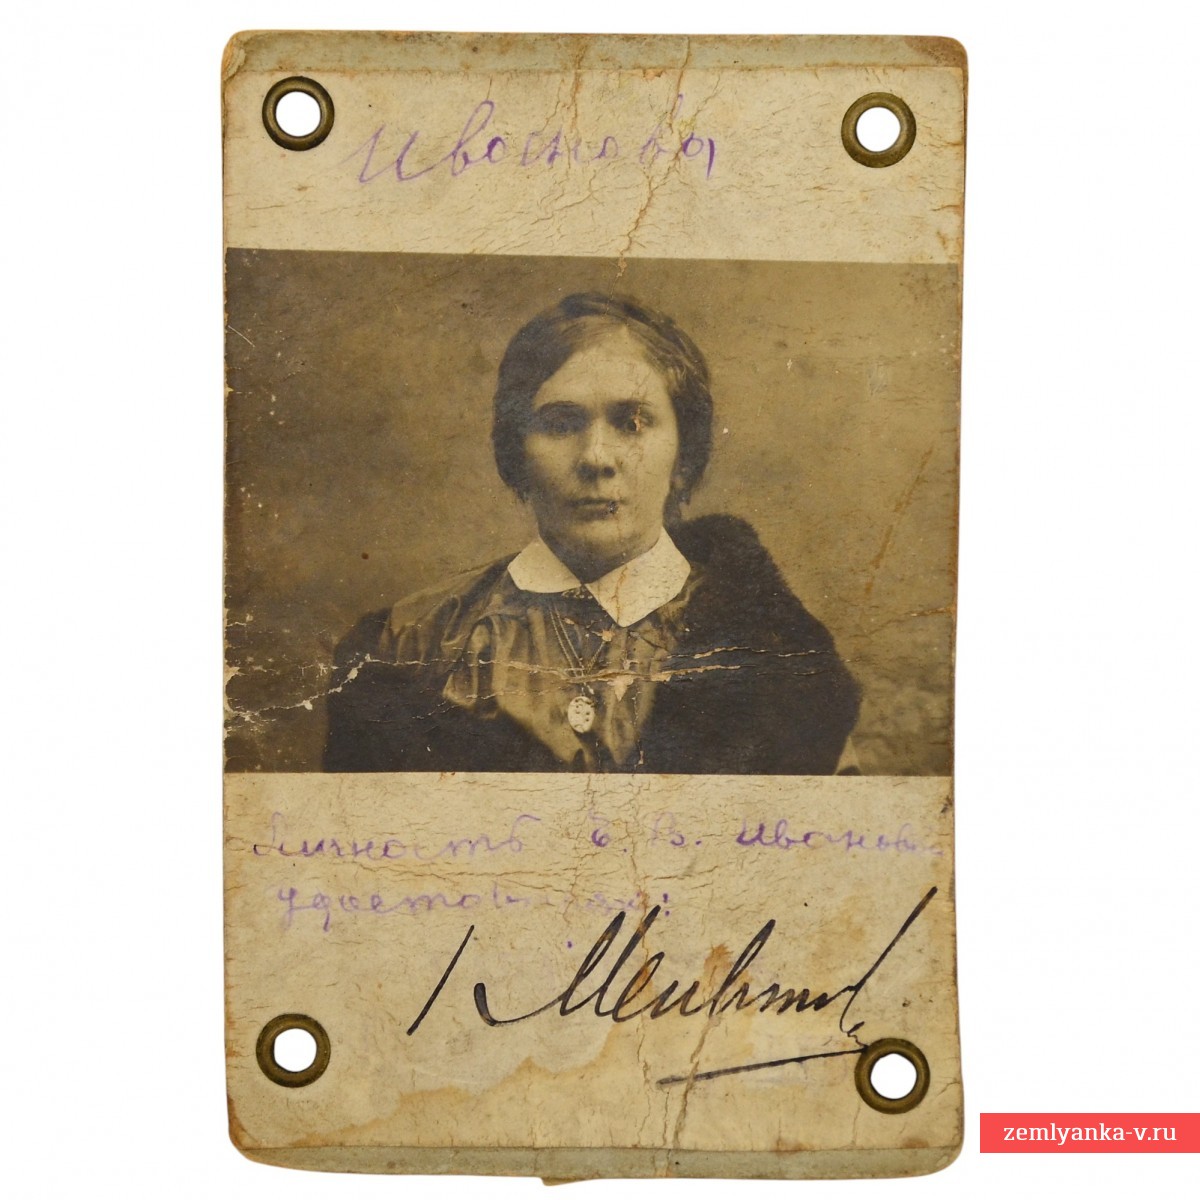 Иванова
Личность Е. В. Ивановой
удостоверяю:
zemlyanka-v.ru